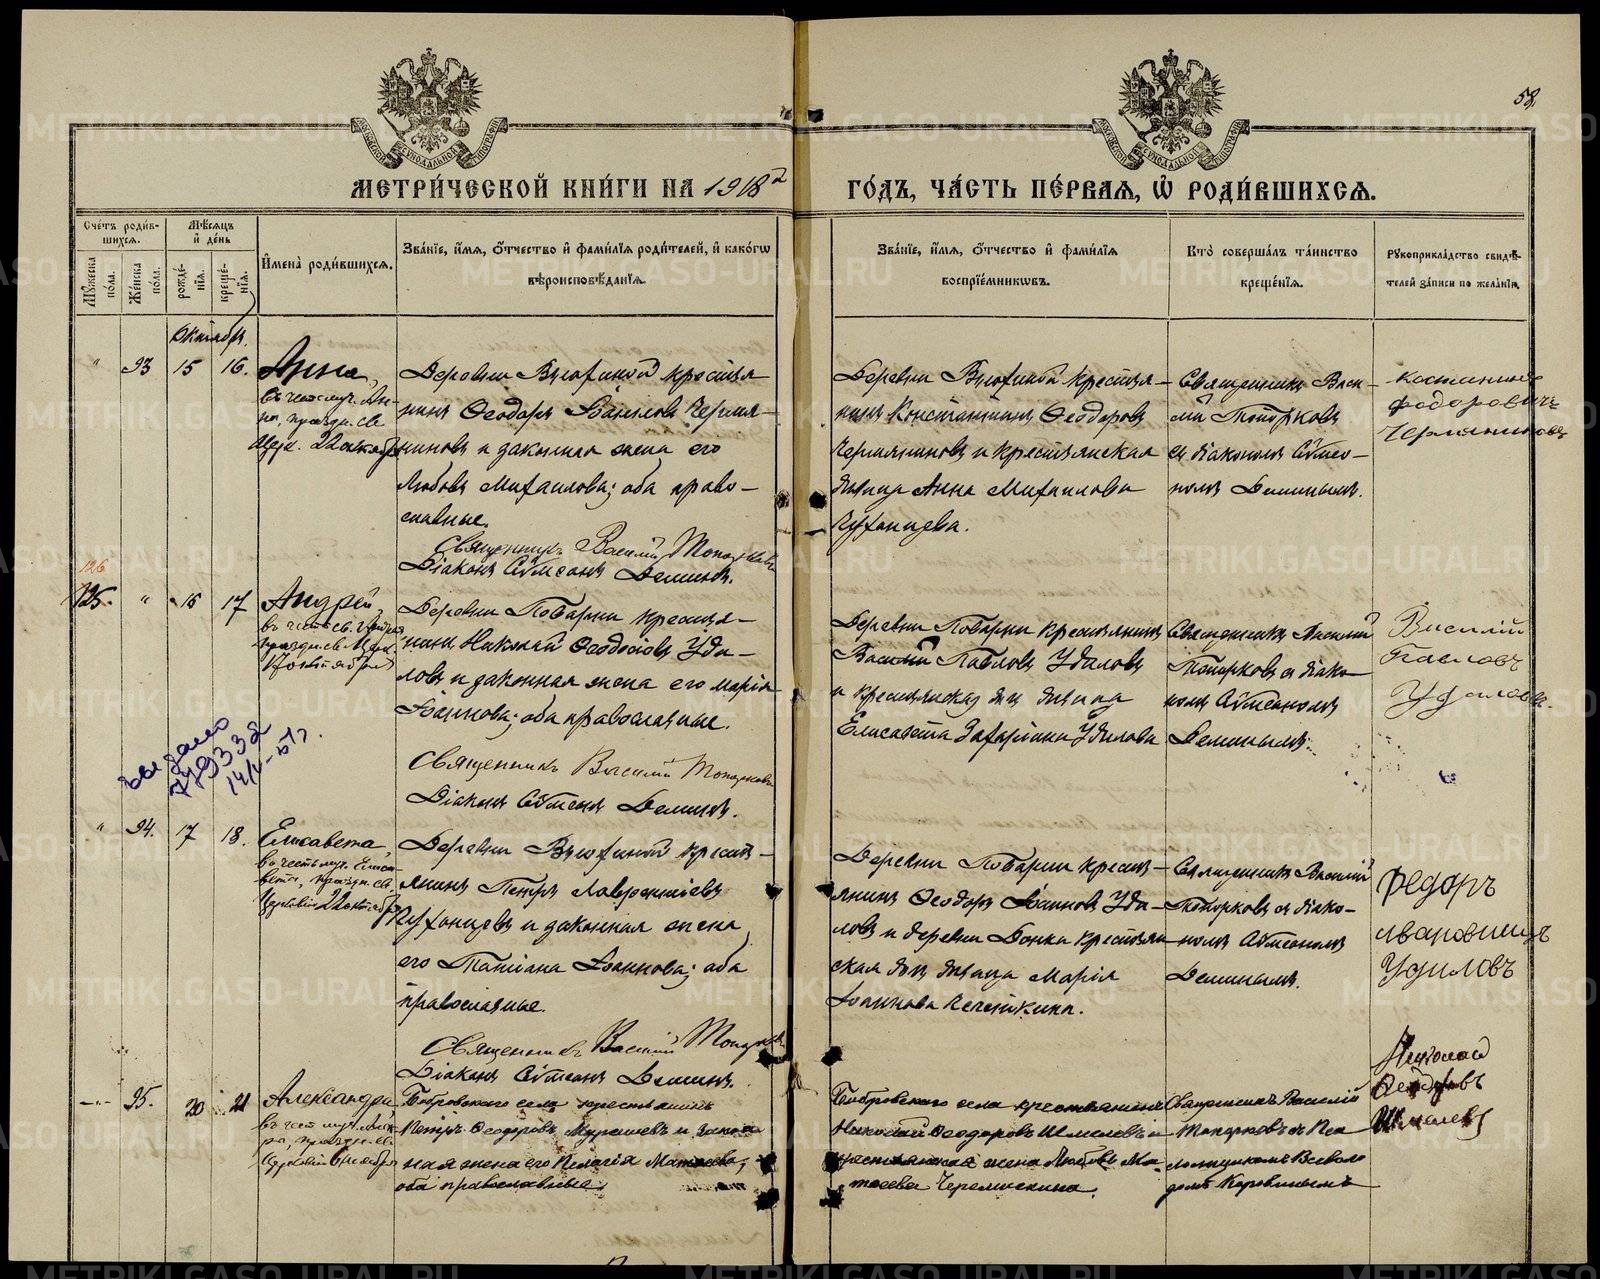 58.
МЕТРИ́ЧЕСКОЙ КНИ́ГИ НА 1918 г
ГО́ДЪ, ЧА́СТЬ ПЕ́РВАѦ, Ѿ РОДИ́ВШИХСѦ.
Сче́тъ роди́в-
шихсѧ.
Мѣсѧцъ
и де́нь
Мꙋжеска
по́ла.
Же́нска
по́ла.
рожде́-
нїѧ.
креще́-
нїѧ.
И҆мена̀ роди́вшихсѧ.
Зва́нїе, и҆́мѧ, ѻ҆́тчество и҆ фами́лїѧ роди́телей, и҆ како́гѡ
вѣроисповѣ́данїѧ.
Зва́нїе, и҆́мѧ, ѻ҆́тчество и҆ фами́лїѧ
воспрїе́мникѡвъ.
Кто̀ соверша́лъ та́инство
креще́нїѧ.
Рꙋкоприкла́дство свидѣ́-
телей за́писи по жела́нїю.
Октябрь.
" 93 15 16.
Анна,
въ честь муч. Ан-
ны, праздн. св.
Церк. 22 октября
Деревни Вьюхиной крестья-
нинъ Ѳеодоръ Іоанновъ Чермя-
ниновъ и законная жена его
Любовь Михаилова; оба право-
славные.
Священникъ Василій Топорковъ
Діаконъ Сѵмеонъ Деминъ.
Деревни Вьюхиной крестья-
нинъ Константинъ Ѳеодоровъ
Чермяниновъ и крестьянская
дѣвица Анна Михаилова
Чуфанцева.
Священникъ Васи-
лій Топорковъ
съ діакономъ Сѵмео-
номъ Деминымъ.
Костянтинъ
Федоровичъ
Чермяниновъ
126
125. " 16 17
Андрей,
въ честь св. Андрея
праздн. св. Церк.
Деревни Поварни крестья-
нинъ Николай Ѳеодосіевъ Уда-
ловъ и законная жена его Марія
Іоаннова; оба православные.
Священникъ Василій Топорковъ
Діаконъ Сѵмеонъ Деминъ.
Деревни Поварни крестьянинъ
Василій Павловъ Удаловъ
и крестьянская дѣвица
Елисавета Захаріина Удалова
Священникъ Василій
Топорковъ съ діако-
номъ Сѵмеономъ
Деминымъ.
Василій
Павловъ
Удаловъ.
выдано
779332
" 94. 17 18.
Елисавета,
въ честь муч. Елиса-
веты, праздн. св.
Церковію 22 октября
Деревни Вьюхиной кресть-
янинъ Петръ Лаврентіевъ
Чуфанцевъ и законная жена
его Татіана Іоаннова; оба
православные.
Священникъ Василій Топорковъ
Діаконъ Сѵмеонъ Деминъ.
Деревни Поварни кресть-
янинъ Ѳеодоръ Іоанновъ Уда-
ловъ и деревни крестьян-
ская дѣвица Марія
Іоаннова
Священникъ Василій
Топорковъ съ діако-
номъ Сѵмеономъ
Деминымъ.
Федоръ
Ивановичъ
Удиловъ
95. 20 21
Александра,
въ честь муч. Алекс-
ры, праздн. св.
Церковію 6 ноября
Бобровскаго села крестьянинъ
Петръ Ѳеодоровъ и закон-
ная жена его Пелагія Матѳеева,
оба православные.
Бобровскаго села крестьянинъ
Николай Ѳеодоровъ Шмелевъ и
крестьянская жена Любовь Ма-
тѳеева Черемискина.
Священникъ Василій
Топорковъ съ Пса-
ломщикомъ Всеволо-
домъ Коровинымъ
Николай
Федоровъ
Шмелевъ
METRIKI.GASO-URAL.RU